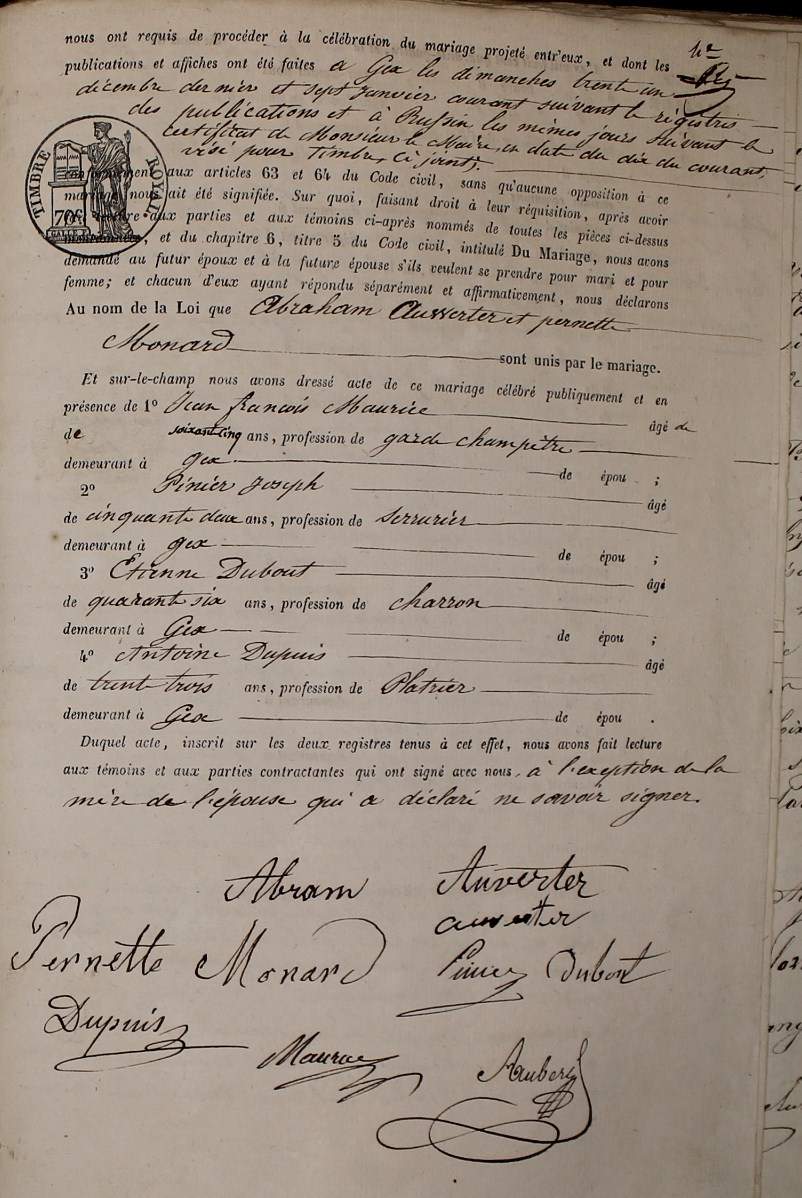 nous ont requis de procéder à la célébration du mariage projeté entr'eux, et dont les
publications et affiches ont été faites a Gex les dimanches trente un
décembre dernier et sept Janvier courant suivant le régistres
des publications et à Russin les mêmes jours suivant le
certificat de Monsieur le Maire en date du dix du courant,
visé pour Timbre, Ci joint.
TIMBRE ROYAL
70c.
conformément aux articles 63 et 64 du Code civil, sans qu'aucune opposition à ce
mariage nous ait été signifiée. Sur quoi, faisant droit à leur réquisition, après avoir
lecture aux parties et aux témoins ci-après nommés de toutes les pièces ci-dessus
mentionnées, et du chapitre 6, titre 5 du Code civil, intitulé Du Mariage, nous avons
demandé au futur époux et à la future épouse s'ils veulent se prendre pour mari et pour
femme; et chacun d'eux ayant répondu séparément et affirmativement, nous déclarons
Au nom de la Loi que Abraham Auwerter et pernette
Monard sont unis par le mariage.
Et sur-le-champ nous avons dressé acte de ce mariage célébré publiquement et en
présence de 1º Jean françois Maurice âgé de
de soixant cinq ans, profession de garde champêtre
demeurant à gex de épou ;
2º Pinier Joseph âgé
de cinquante deux ans, profession de Serrurier
demeurant à gex de épou ;
3º Etienne Dubout âgé
de quarant six ans, profession de charron
demeurant à Gex de épou ;
4º Antoine Dupuis âgé
de trent trois ans, profession de Platrier
demeurant à Gex de épou .
Duquel acte, inscrit sur les deux registres tenus à cet effet, nous avons fait lecture
aux témoins et aux parties contractantes qui ont signé avec nous, à l'exception de la
mère de l'épouse qui a déclaré ne savoir signer.
Abram Auverter
auverter
Pernette Monard Pinier Dubout
Dupuis
Maurice Aubert